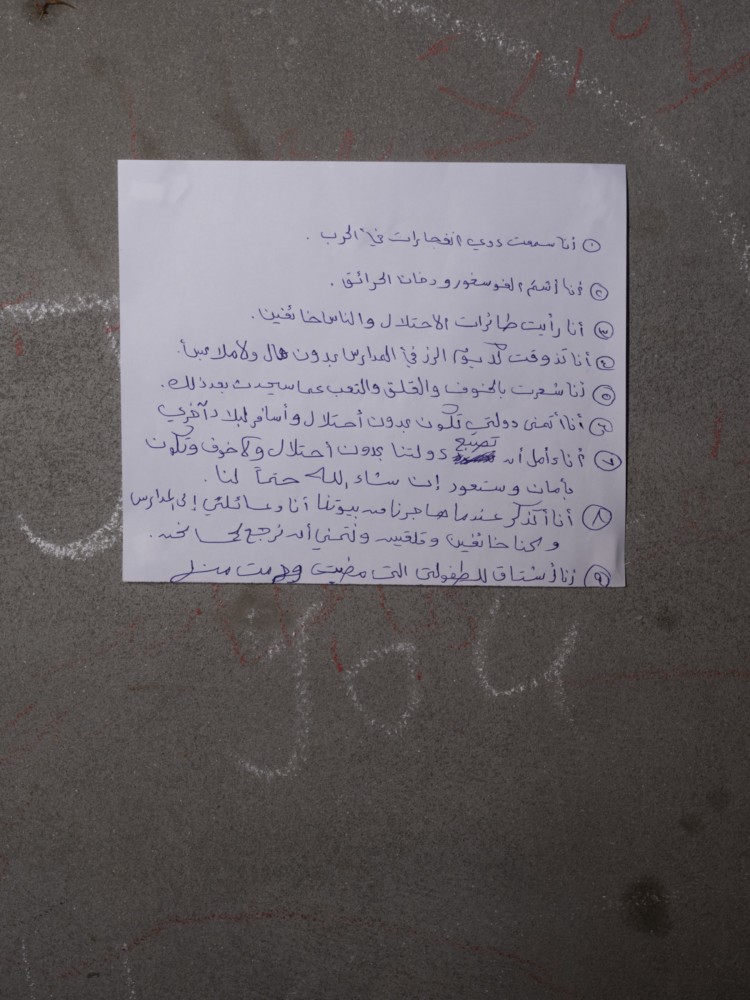 ١ أنا سمعت دوي انفجارات في الحرب .
٢ أنا أشم الفوسفور ودخان الحرائق .
٣ أنا رأيت طائرات الاحتلال والناس خائفين .
٤ أنا تذوقت الرز في المدارس بدون
٥ أنا شعرت بالخوف والقلق والتعب عما سيحدث بعد ذلك .
٦ أنا أتمنى دولتي تكون بدون أحتلال وأسافر لبلاد آخرى
٧ أنا ءأمل أن تصبح دولتنا بدون أحتلال ولا خوف وتكون
بأمان وستعود إن شاء الله حتماً لنا .
٨ أنا أتذكر عندما هاجرنا من بيوتنا أنا وعائلتي إلى المدارس
وكنا خائفين وقلقين ونتمنى أن نرجع كما نحن .
٩ أنا أشتاق للطفولتي التي مضيت وحرمت منها